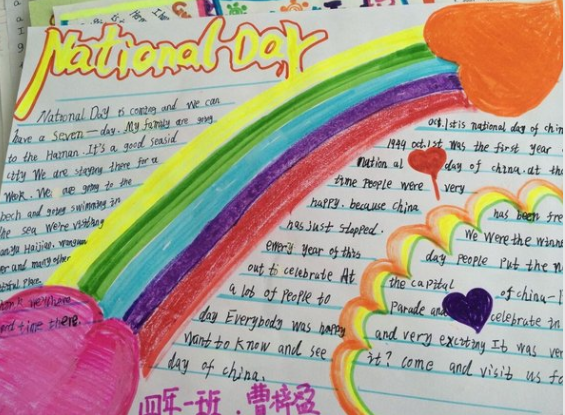 National Day
National Day is coming and we can
have a seven—day. My family are going
to the Hainan It's a good seasid
ctty We are staying there for a
Week. We are going to the
bech and going swimming in
the sea We're visiting
Haijiao.
er and many other
Place
good time there.
oct.1st is national day of chin
1949 oct.1st was the first year
Nation al day of china. at tha
time People were very
happy. because china has been fre
has just stopped. We Were the winn
every year of this day people put the n
out to celebrate At the capital of china-
a lot of People to Parade and celebrate in
day Everybody was happy and very exciting It was ver
want to know and see it? come and visit us fo
day of china.
四年一班.曹梓盈